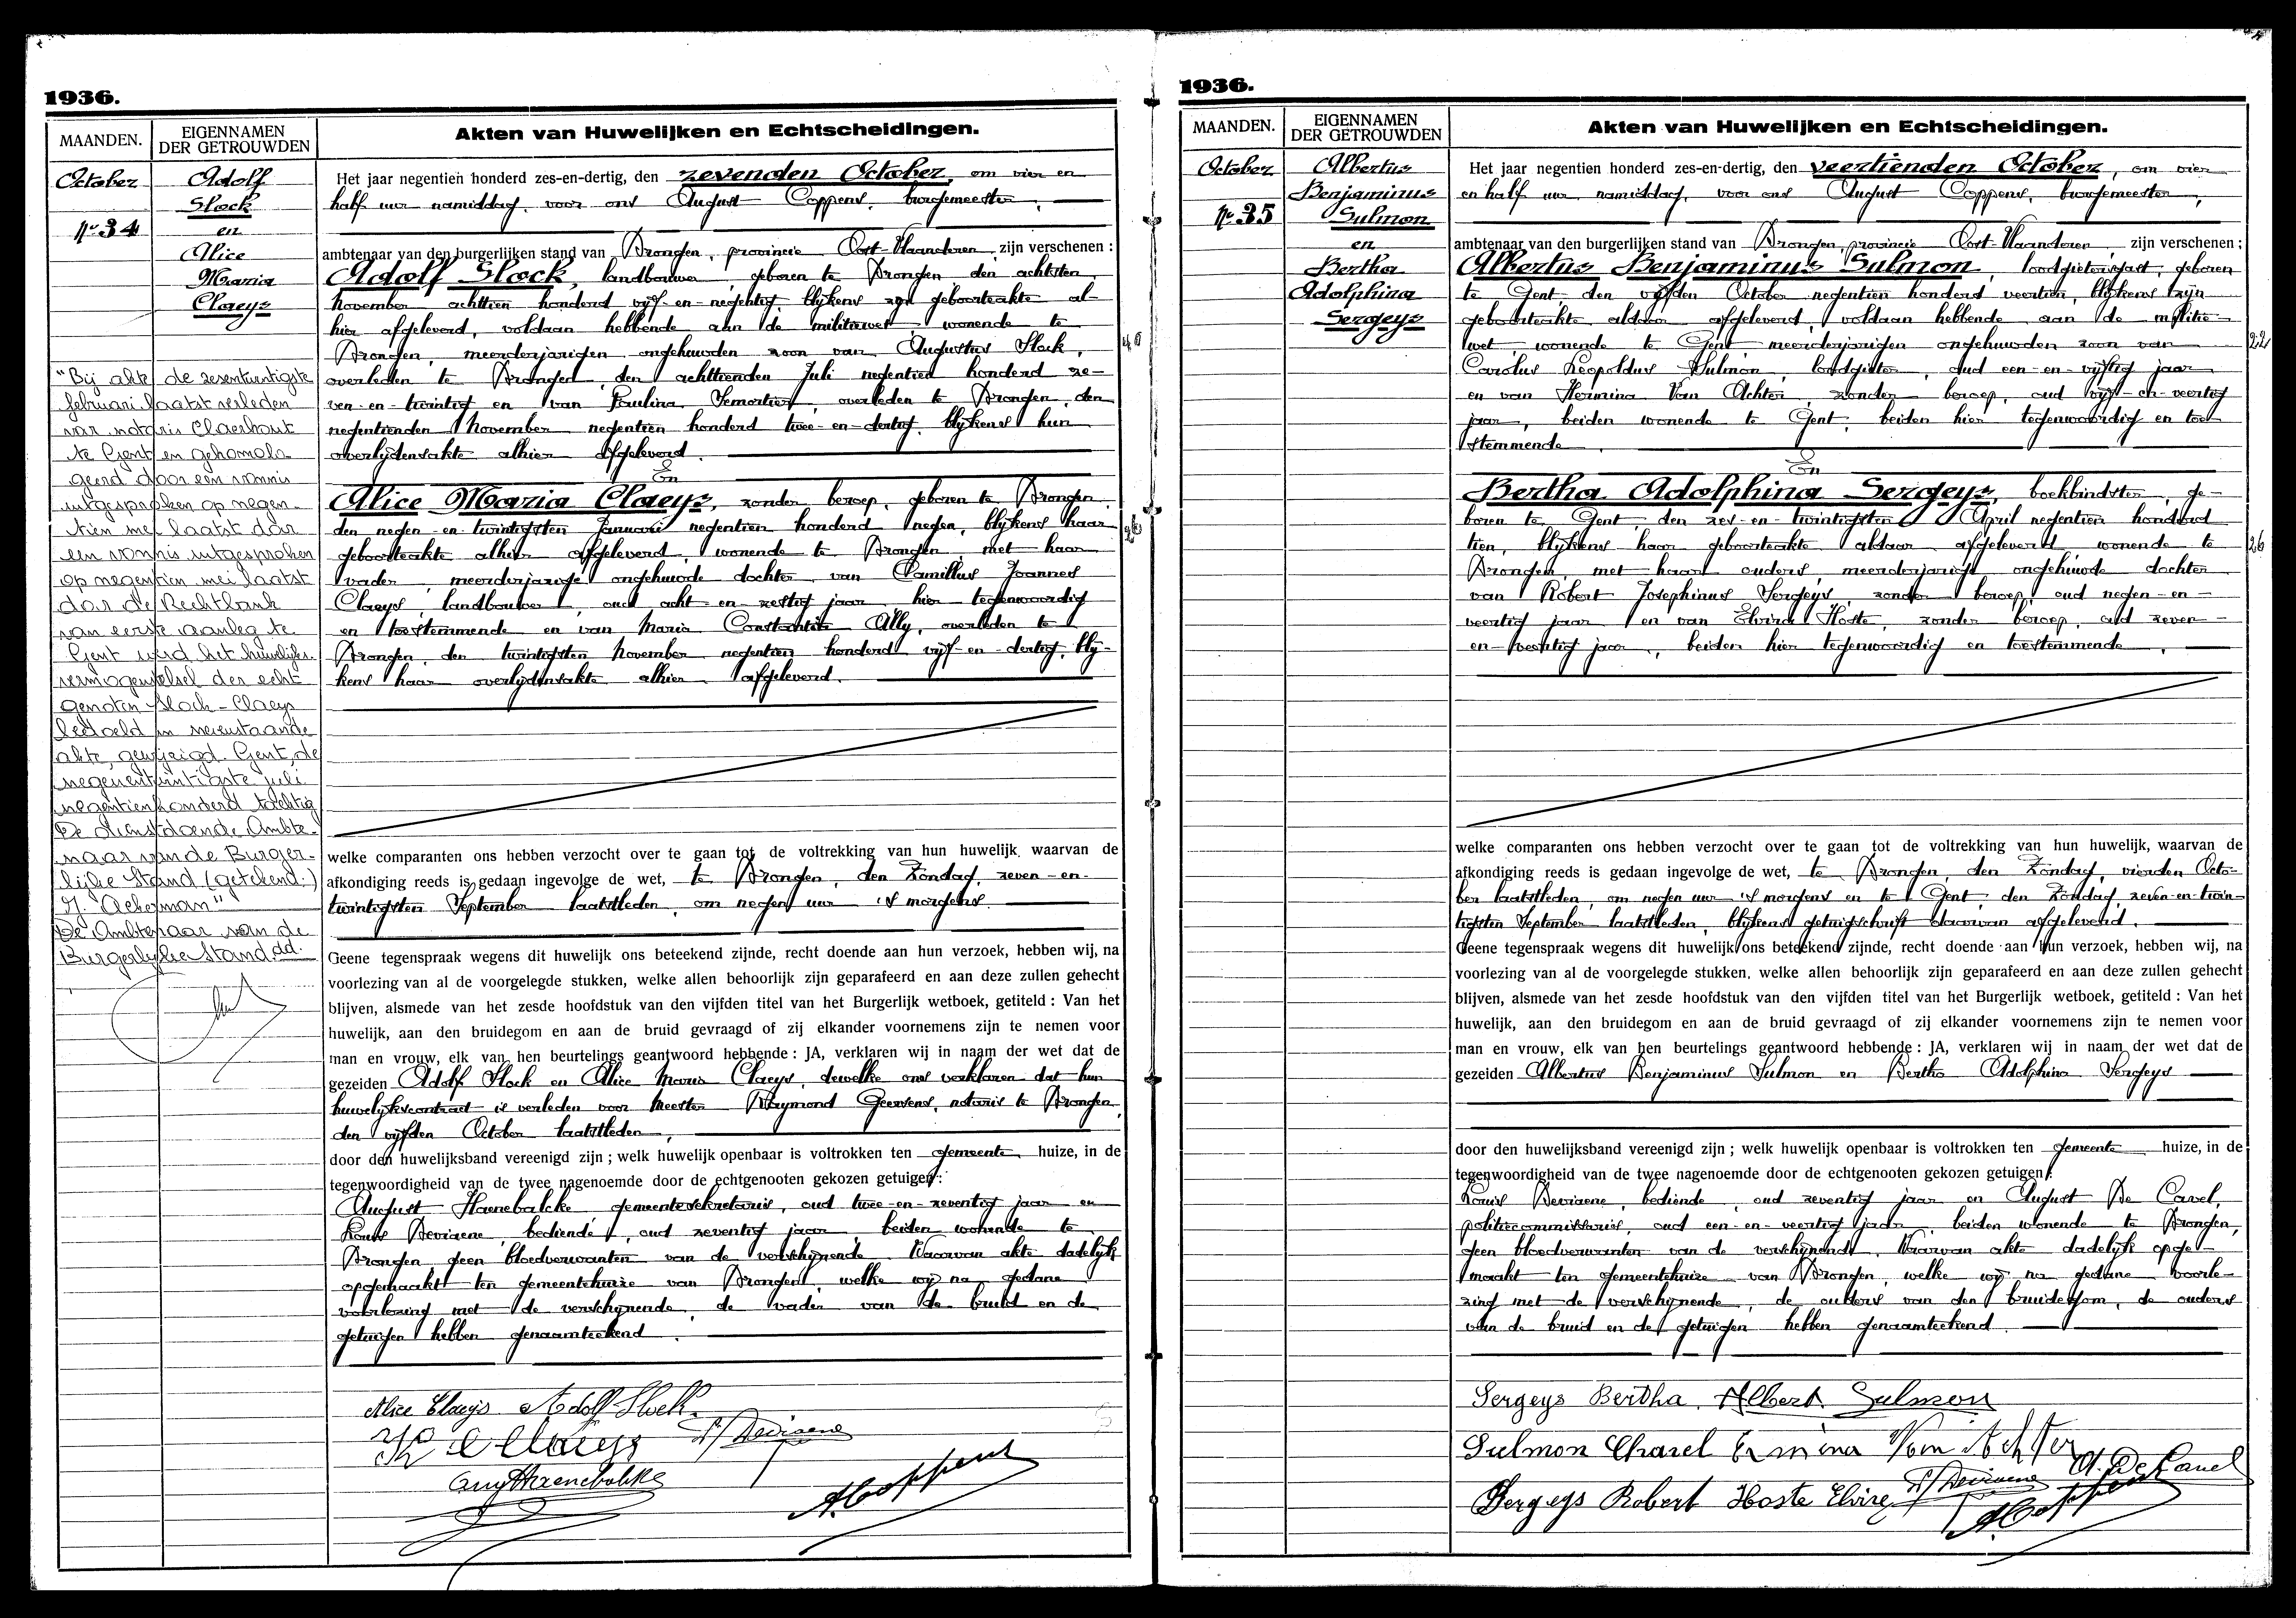 1936.
MAANDEN.
EIGENNAMEN
DER GETROUWDEN
Akten van Huwelijken en Echtscheidingen.
October
No 34
Adolf
Slock
en
Alice
Maria
Claeys
"Bij akte de zesentwintigste
februari laatst verleden
van notaris Claerhout
te Gent en gehomolo-
geerd door een vonnis
uitgesproken op negen-
tien mei laatst door
een vonnis uitgesproken
op negentien mei laatst
door de Rechtbank
van eerste aanleg te
Gent werd het huwelijks-
vermogenstelsel der echt-
genoten Slock-Claeys
bedoeld in nevenstaande
akte, gewijzigd. Gent, de
negenentwintigste juli
negentienhonderd tachtig
De dienstdoende Ambte-
naar van de Burger-
lijke Stand (getekend:)
"Ackerman"
De Ambtenaar van de
Burgerlijke Stand. dd.
Het jaar negentien honderd zes-en-dertig, den zevenden October, om vier en
half uur namiddag, voor ons August Coppens, burgemeester,
ambtenaar van den burgerlijken stand van Drongen, provincie Oost-Vlaanderen, zijn verschenen :
Adolf Slock, landbouwer, geboren te Drongen den achtsten
November achttien honderd vijf-en-negentig, blijkens zijn geboorteakte al-
hier afgeleverd, voldaan hebbende aan de militiewet, wonende te
Drongen, meerderjarigen ongehuwden zoon van Augustus Slock,
overleden te Drongen, den achttienden Juli negentien honderd ze-
ven-en-twintig en van Paulina Temortier, overleden te Drongen, den
negentienden November negentien honderd twee-en-dertig, blijkens hun
overlijdensakte alhier afgeleverd.
En
Alice Maria Claeys, zonder beroep, geboren te Drongen
den negen-en-twintigsten Januari negentien honderd negen, blijkens haar
geboorteakte alhier afgeleverd, wonende te Drongen, met haar
vader meerderjarige ongehuwde dochter van Camillus Joannes
Claeys, landbouwer, oud acht-en-zestig jaar, hier tegenwoordig
en toestemmende en van Maria Constantia Ally, overleden te
Drongen, den twintigsten November negentien honderd vijf-en-dertig, blij-
kens haar overlijdensakte alhier afgeleverd.
welke comparanten ons hebben verzocht over te gaan tot de voltrekking van hun huwelijk, waarvan de
afkondiging reeds is gedaan ingevolge de wet, te Drongen, den Zondag, zeven-en-
twintigsten September laatstleden, om negen uur 's morgens.
Geene tegenspraak wegens dit huwelijk ons beteekend zijnde, recht doende aan hun verzoek, hebben wij, na
voorlezing van al de voorgelegde stukken, welke allen behoorlijk zijn geparafeerd en aan deze zullen gehecht
blijven, alsmede van het zesde hoofdstuk van den vijfden titel van het Burgerlijk wetboek, getiteld : Van het
huwelijk, aan den bruidegom en aan de bruid gevraagd of zij elkander voornemens zijn te nemen voor
man en vrouw, elk van hen beurtelings geantwoord hebbende : JA, verklaren wij in naam der wet dat de
gezeiden Adolf Slock en Alice Maria Claeys, dewelke ons verklaren dat hun
huwelijkscontract is verleden voor Meester Raymond Geersens, notaris te Drongen,
den vijfden October laatstleden,
door den huwelijksband vereenigd zijn ; welk huwelijk openbaar is voltrokken ten gemeente huize, in de
tegenwoordigheid van de twee nagenoemde door de echtgenooten gekozen getuigen :
August Haenebalcke gemeentesekretaris, oud twee-en-zeventig jaar en
Louis Deviaene, bediende, oud zeventig jaar beiden wonende te
Drongen geen bloedverwanten van de verschijnende. Waarvan akte dadelijk
opgemaakt ten gemeentehuize van Drongen, welke wij na gedane
voorlezing met de verschijnende, de vader van de bruid en de
getuigen hebben genaamteekend.
Alice Claeys Adolf Slock.
Claeys Deviaene
Aug Haenebalcke
A. Coppens
1936.
MAANDEN.
EIGENNAMEN
DER GETROUWDEN
Akten van Huwelijken en Echtscheidingen.
October
No 35
Albertus
Benjaminus
Sulmon
en
Bertha
Adolphina
Sergeys
Het jaar negentien honderd zes-en-dertig, den veertienden October, om vier
en half uur namiddag, voor ons August Coppens, burgemeester,
ambtenaar van den burgerlijken stand van Drongen, provincie Oost-Vlaanderen, zijn verschenen ;
Albertus Benjaminus Sulmon, loodgietersgast, geboren
te Gent, den vijfden October negentien honderd veertien, blijkens zijn
geboorteakte aldaar afgeleverd, voldaan hebbende aan de militie-
wet, wonende te Gent, meerderjarigen ongehuwden zoon van
22
Carolus Leopoldus Sulmon, loodgieter, oud een-en-vijftig jaar
en van Hermina Van Achter, zonder beroep, oud vijf-en-veertig
jaar, beiden wonende te Gent, beiden hier tegenwoordig en toe
stemmende.
En
Bertha Adolphina Sergeys, boekbindster, ge-
boren te Gent, den zes-en-twintigsten April negentien honderd
tien, blijkens haar geboorteakte aldaar afgeleverd wonende te
26
Drongen, met haar ouders, meerderjarige ongehuwde dochter
van Robert Josephinus Sergeys, zonder beroep, oud negen-en-
veertig jaar en van Elvira Hoste, zonder beroep, oud zeven-
en-veertig jaar, beiden hier tegenwoordig en toestemmende.
welke comparanten ons hebben verzocht over te gaan tot de voltrekking van hun huwelijk, waarvan de
afkondiging reeds is gedaan ingevolge de wet, te Drongen, den Zondag, vierden Octo-
ber laatstleden, om negen uur 's morgens en te Gent, den Zondag, zeven-en-twin-
tigsten September laatstleden, blijkens getuigschrift daarvan afgeleverd.
Geene tegenspraak wegens dit huwelijk ons beteekend zijnde, recht doende aan hun verzoek, hebben wij, na
voorlezing van al de voorgelegde stukken, welke allen behoorlijk zijn geparafeerd en aan deze zullen gehecht
blijven, alsmede van het zesde hoofdstuk van den vijfden titel van het Burgerlijk wetboek, getiteld : Van het
huwelijk, aan den bruidegom en aan de bruid gevraagd of zij elkander voornemens zijn te nemen voor
man en vrouw, elk van hen beurtelings geantwoord hebbende : JA, verklaren wij in naam der wet dat de
gezeiden Albertus Benjaminus Sulmon en Bertha Adolphina Sergeys
door den huwelijksband vereenigd zijn ; welk huwelijk openbaar is voltrokken ten gemeente huize, in de
tegenwoordigheid van de twee nagenoemde door de echtgenooten gekozen getuigen :
Louis Deviaene, bediende, oud zeventig jaar en August De Cavel,
politiecommissaris, oud een-en-veertig jaar, beiden wonende te Drongen,
geen bloedverwanten van de verschijnende. Waarvan akte dadelijk opge-
maakt ten gemeentehuize van Drongen, welke wij na gedane voorle-
zing met de verschijnende, de ouders van den bruidegom, de ouders
van de bruid en de getuigen hebben genaamteekend.
Sergeys Bertha. Albert Sulmon
Sulmon Charel Ermina Van Achter
Deviaene A. De Cavel
Sergeys Robert Hoste Elvire
A. Coppens